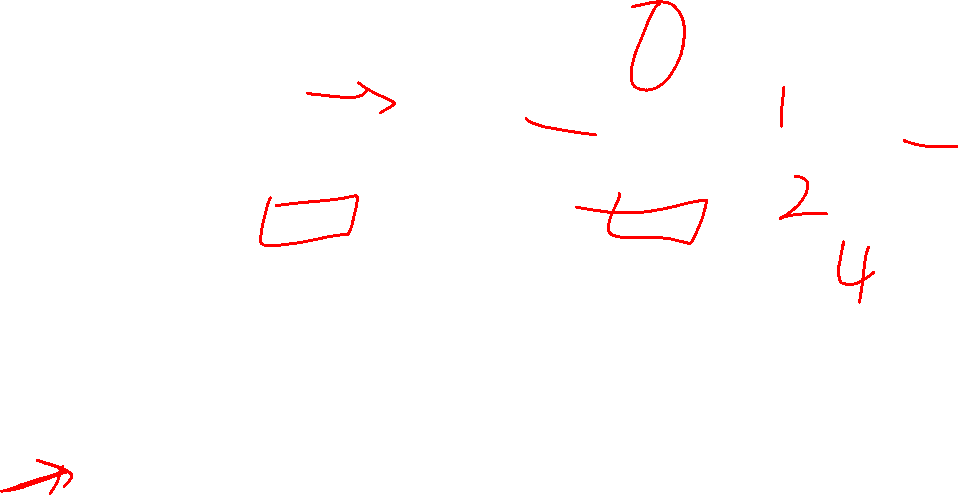 0
1
2
4